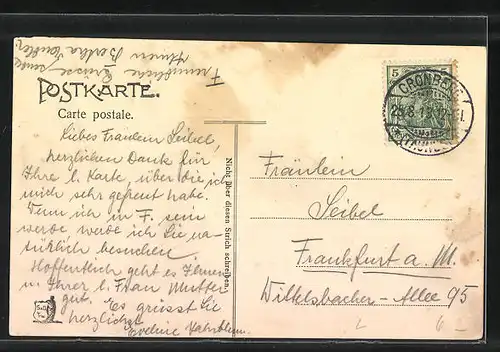 Freundliche Grüsse sendet
Ihnen Bertha
POSTKARTE.
Carte postale.
Liebes Fräulein Seibel,
herzlichen Dank für
Ihre l. Karte, über die ich
mich sehr gefreut habe.
Wenn ich in F. sein
werde, werde ich Sie na-
türlich besuchen.
Hoffentlich geht es Ihnen
u. Ihrer l. Frau Mutter
gut. Es grüsst Sie
herzlichst
Eveline
Nicht über diesen Strich schreiben.
5 5
CRONBERG
(TAUNUS)
Fräulein
Seibel
Frankfurt a. M.
Wittelsbacher-Allee 95